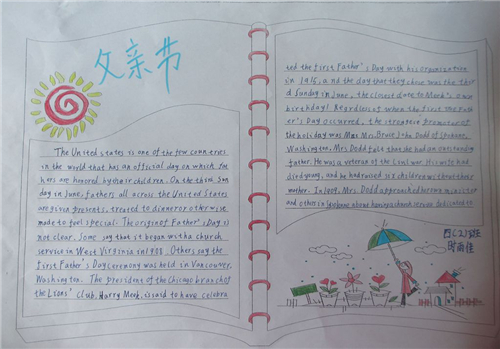 父亲节
The United states is one of the few countries
in the world that has an official day on which fat
hers are honored by their children. On the third Sun
day in June, fathers all across the United States
are given presents, treated to dinner or otherwise
made to feel special. The origin of Father's Day is
not clear. Some say that it began with a church
service in West Virginia in 1908. Others say the
first Father's Day ceremony was held in Vancouver,
Washington. The president of the Chicago branch of
the Lions' Club, Harry Meek, is said to have celebra
ted the first Father's Day with his organization
in 1915, and the day that they chose was the thir
d Sunday in June, the closest date to Meek's own
birthday! Regardless of when the first
Day occurred, the strongest promoter of
the holiday was Mrs. Bruce John Dodd of Spokane,
Washington. Mrs. Dodd felt that she had an outstanding
father. He was a veteran of the Civil War. His wife had
died young, and he had raised six children without their
mother. In 1909, Mrs. Dodd approached her own minister
and others in Spokane about having a church service dedicated to
四(2)班